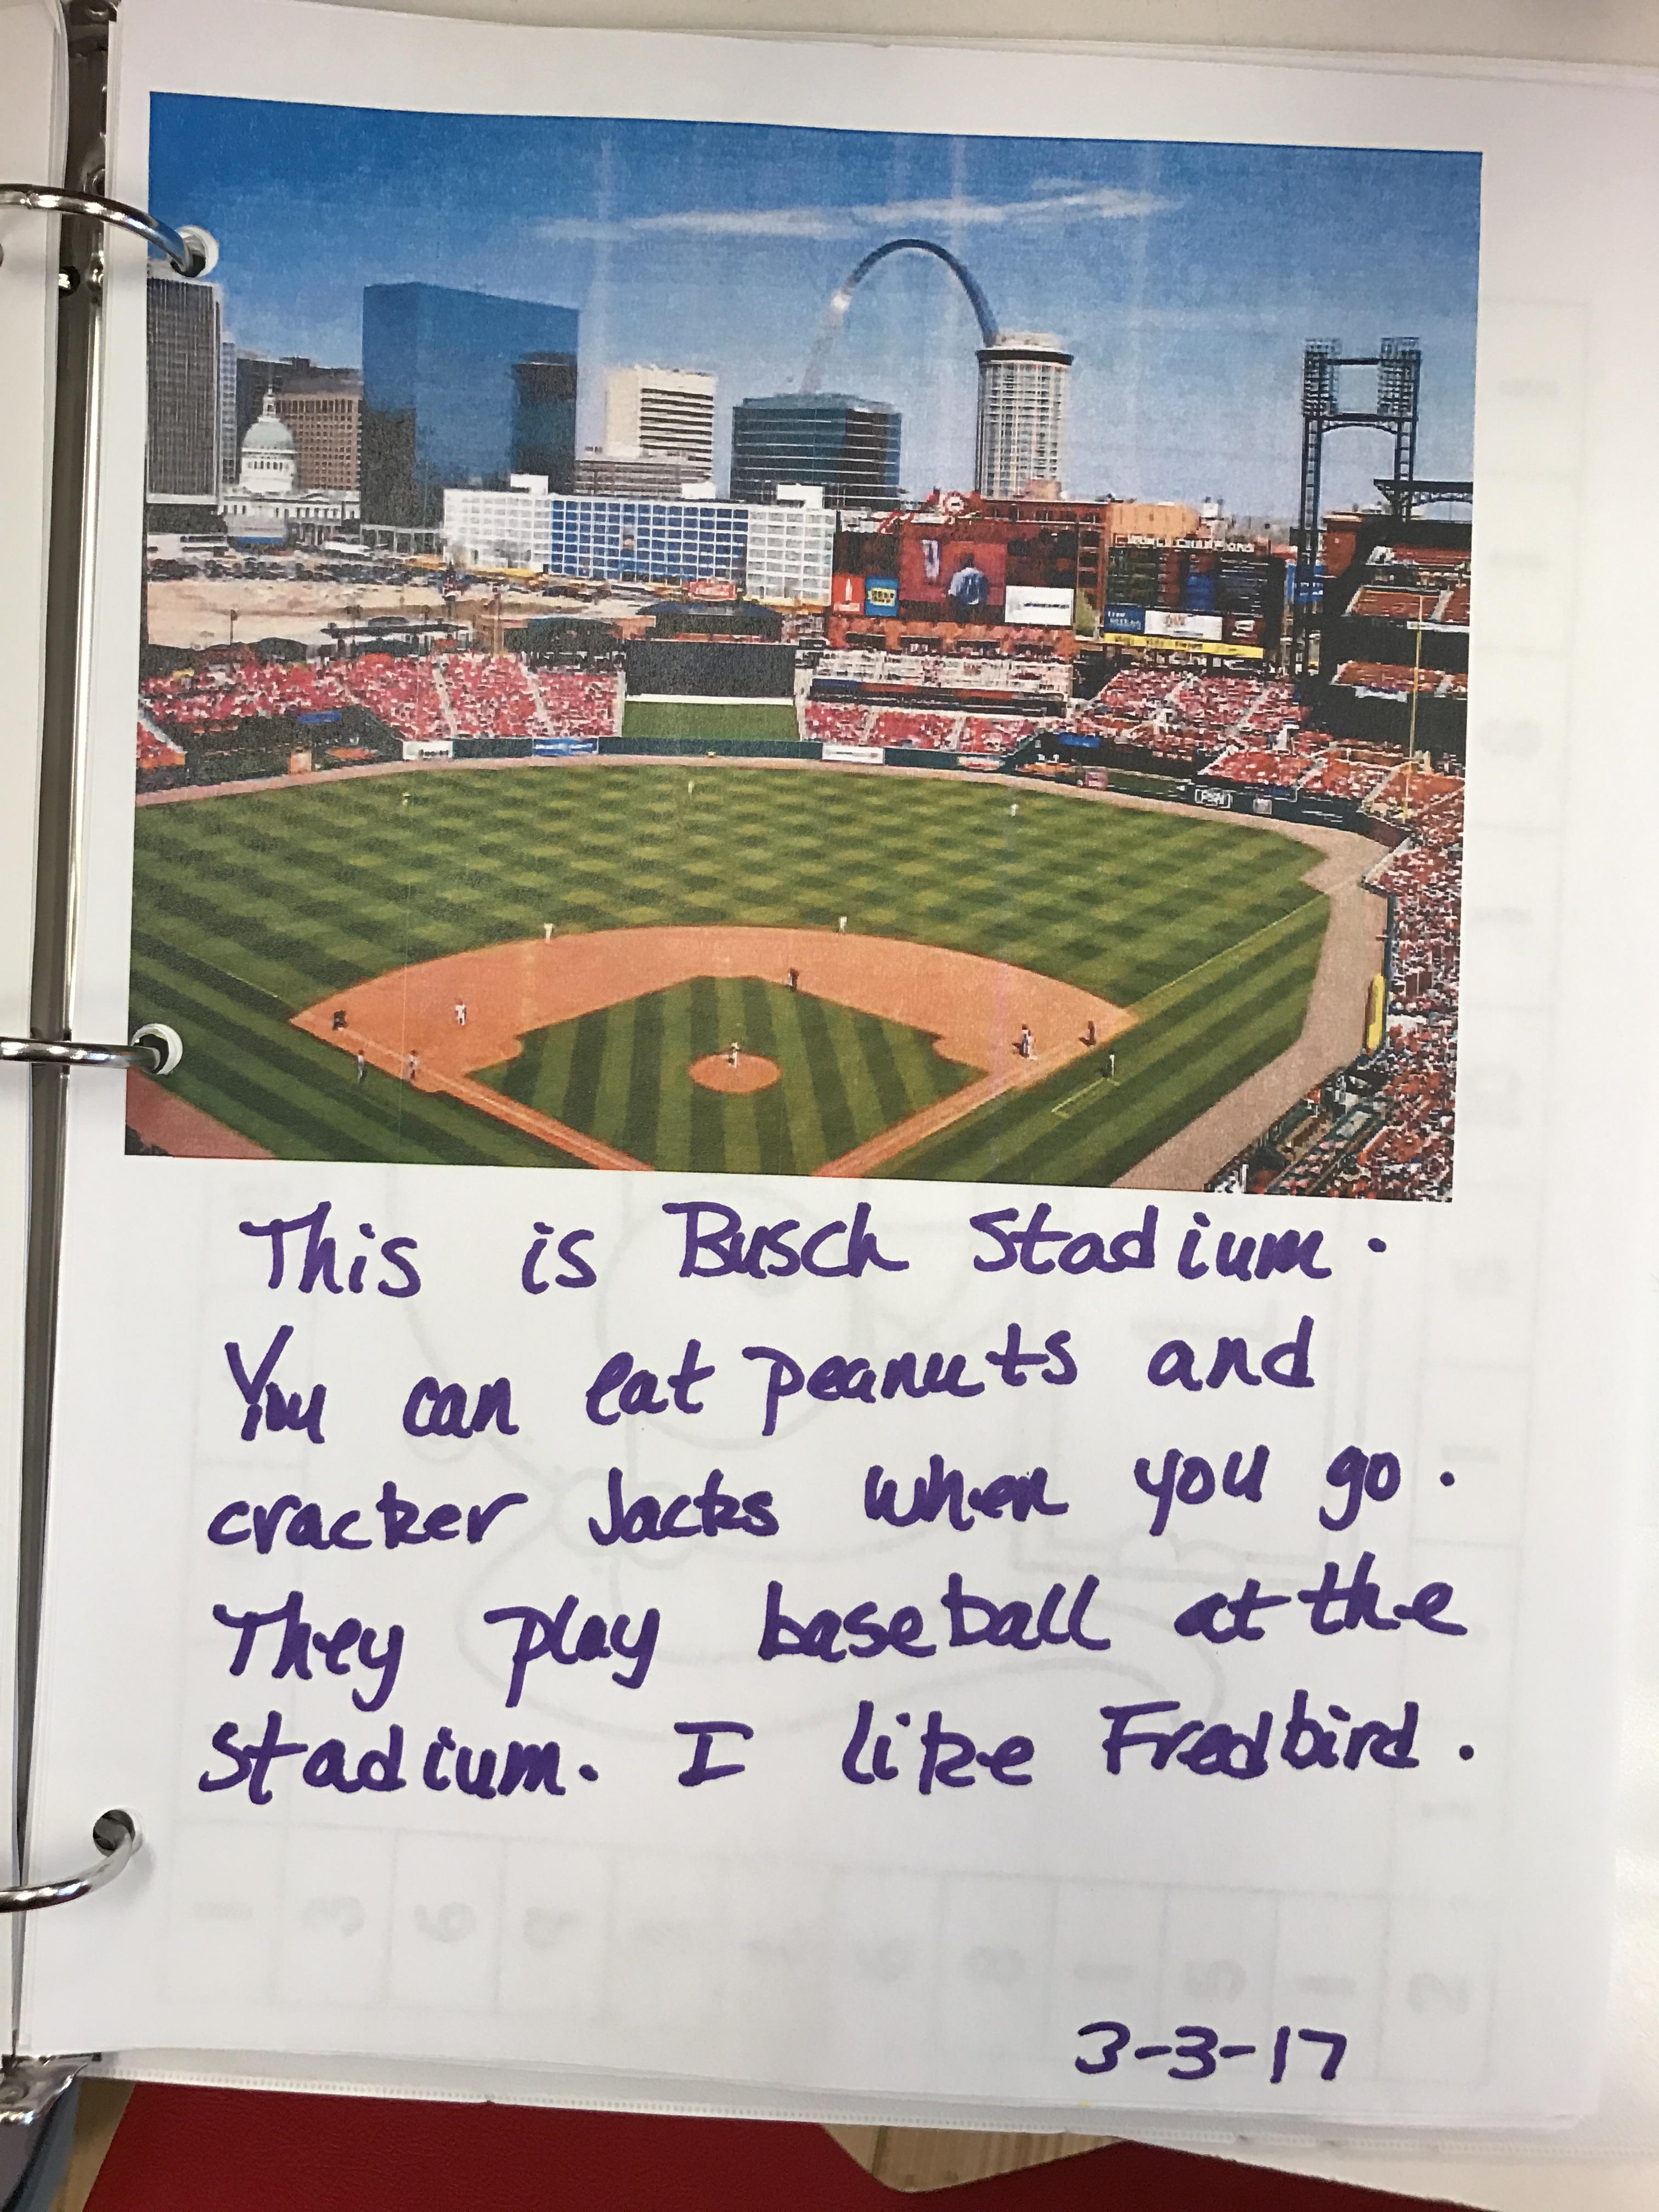 WORLD CHAMPIONS
This is Busch Stadium.
You can eat peanuts and
cracker Jacks when you go.
They play baseball at the
Stadium. I like Fredbird.
3-3-17